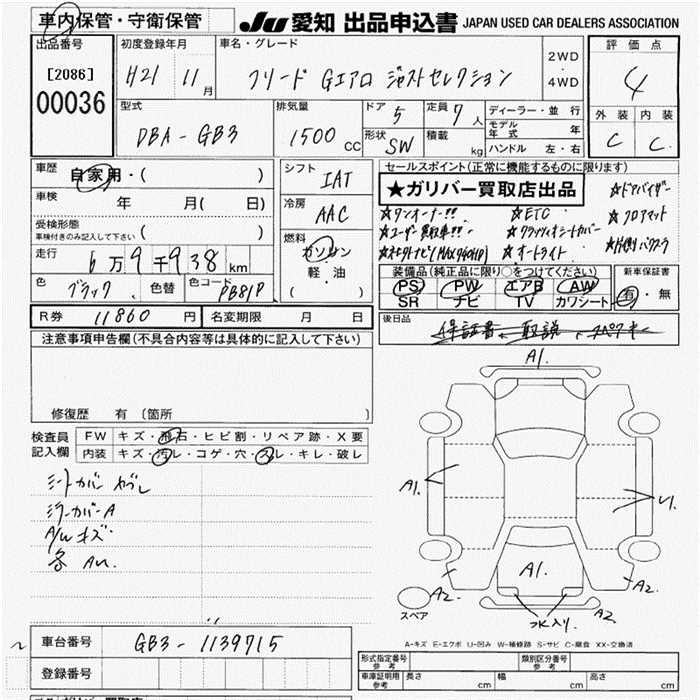 車内保管・守衛保管
JU 愛知 出品申込書 JAPAN USED CAR DEALERS ASSOCIATION
出品番号
[2086]
00036
初度登録年月
H21 年 11月
車名・グレード
フリード Gエアロ ジャストセレクション
2WD
・
4WD
評価点
4
外装 内装
C C
型式
DBA-GB3
排気量
1500 CC
ドア 5
形状 SW
定員 7人
積載 kg
ディーラー・並行
モデル年式 年
ハンドル 左・右
車歴
自家用・( )
車検 年 月( 日)
受検形態
車検付きのみ記入して下さい ( )
走行 6万9千938km
色 ブラック 色替 色コード PB81P
シフト IAT
冷房 AAC
燃料
ガソリン
軽・油
( )
セールスポイント(正常に機能するものに限ります)
★ガリバー買取店出品
☆ワンオーナー!! ☆ETC ☆ドアバイザー
☆ユーザー買取車!! ☆フロアマット
☆オートライト
装備品(純正品に限り○をつけてください)
PS PW エアB AW
SR ナビ TV カワシート
新車保証書
有・無
R券 11860円 名変期限 月 日
後日品
保証書 取説
注意事項申告欄(不具合内容等は具体的に記入して下さい)
修復歴 有 〔箇所 〕
検査員記入欄
FW キズ・飛石・ヒビ割・リペア跡・X要
内装 キズ・汚レ・コゲ・穴・スレ・キレ・破レ
シートカバー
ミラーカバーA
A/Wキズ
各 AU.
A1.
A1.
A1.
A2.
A2.
A2.
スペア
A-キズ E-エクボ U-凹み W-補修跡 S-サビ C-腐食 XX-交換済
車台番号 GB3-1139715
登録番号
形式指定番号 参考
類別区分番号 参考
車庫証明用 参考 長さ cm 幅 cm 高さ cm